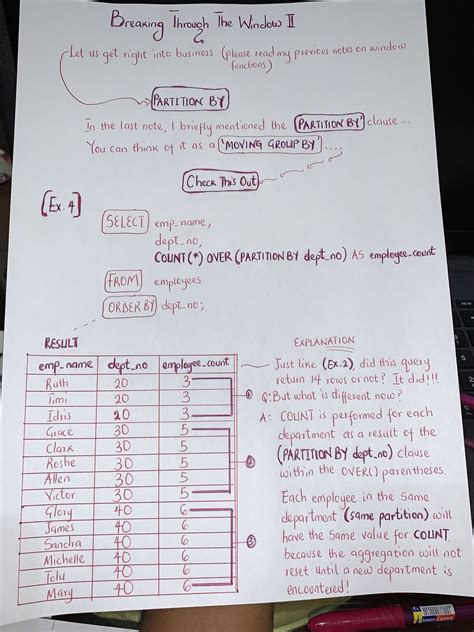 Breaking Through The Window II
Let us get right into business (please read my previous notes on window
functions)
PARTITION BY
In the last note, I briefly mentioned the 'PARTITION BY' clause...
You can think of it as a 'MOVING GROUP BY'....
Check This Out
[Ex. 4]
SELECT emp_name,
dept_no,
COUNT(*) OVER (PARTITION BY dept_no) AS employee_count
FROM employees
ORDER BY dept_no;
RESULT
emp_name dept_no employee_count
Ruth 20 3
Timi 20 3
Idris 20 3
Grace 30 5
Clark 30 5
Roshe 30 5
Allen 30 5
Victor 30 5
Glory 40 6
James 40 6
Sandra 40 6
Michelle 40 6
Tolu 40 6
Mary 40 6
1
2
3
EXPLANATION
Just like (Ex.2), did this query
return 14 rows or not? It did!!!
Q: But what is different now?
A: COUNT is performed for each
department as a result of the
(PARTITION BY dept_no) clause
within the OVER() parentheses.
Each employee in the same
department (same partition) will
have the same value for COUNT
because the aggregation will not
reset until a new department is
encountered!